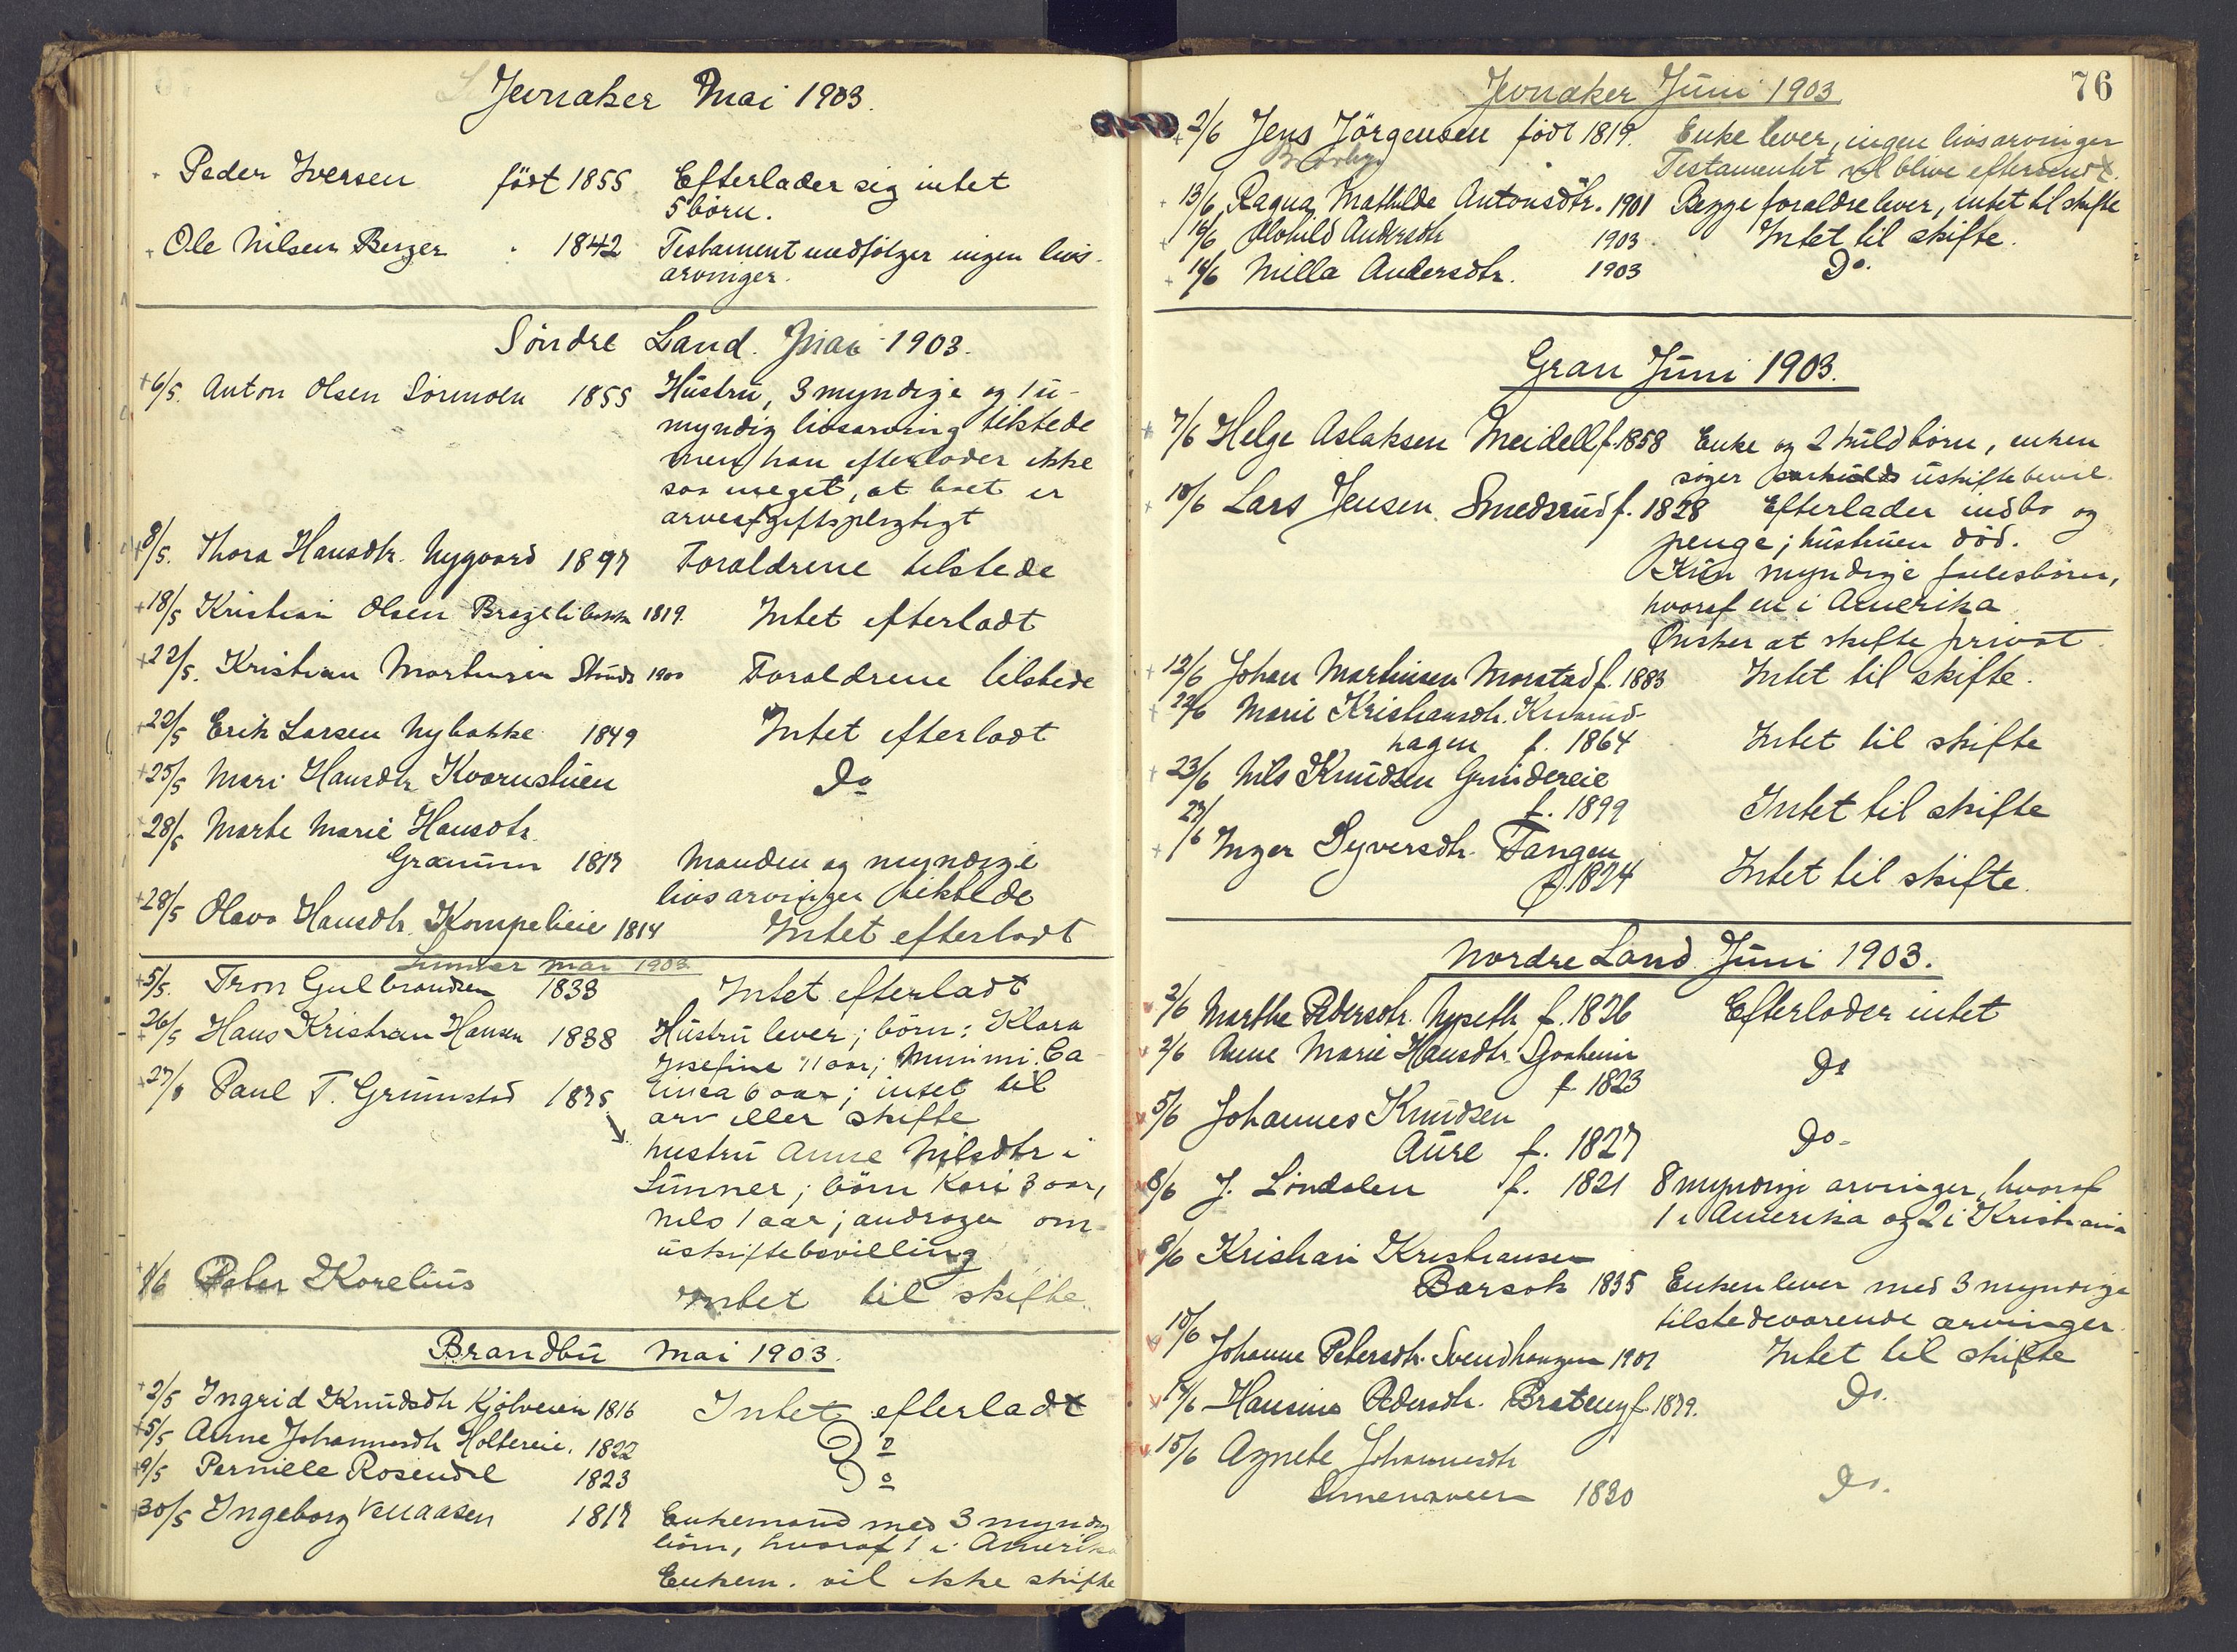 Jevnaker Mai 1903.
Peder Iversen født 1855 Efterlader sig intet
5 börn.
Ole Nilsen Berger " 1842 Testament medfölger ingen livs-
arvinger.
Söndre Land. Mai 1903.
6/5. Anton Olsen 1855 Hustru, 3 myndige og 1 u-
myndig livsarving tilstede
men han efterlader ikke
saa meget, at boet er
arveafgiftspligtigt
8/5. Thora Hansdtr. Nygaard 1897 Forældrene tilstede
18/5 Kristian Olsen 1819. Intet efterladt
22/5. Kristian Martinsen 1900 Forældrene tilstede
22/5 Erik Larsen Nybakke 1849 Intet efterladt
25/5 Mari Hansdtr Kvarnstuen Do
28/5 Marte Marie Hansdtr.
Granum 1817 Manden og myndige
livsarvinger tilstede
28/5 Olava Hansdtr. Kompelieie 1814 Intet efterladt
Lunner Mai 1903.
5/5. Tron Gulbrandsen 1833 Intet efterladt
26/5 Hans Kristian Hansen 1838 Hustru lever; börn: Klara
Josefine 11 aar; Minmi Ca-
27/5 Paul T. Grumstad 1875 linea 6 aar; intet til
arv eller skifte
hustru Anne Nilsdtr i
Lunner; börn Kari 3 aar,
Nils 1 aar; andrager om
uskiftebevilling
1/6 Peter Korelius Intet til skifte.
Brandbu Mai 1903.
2/5 Ingrid Knudsdtr Kjölveien 1816 Intet efterladt
5/5 Anne Johannesdtr Holtereie. 1822 Do
9/5 Pernille Rosendal 1823 Do
30/5 Ingeborg Venaasen 1817 Enkemand med 3 myndig
börn, hvoraf 1 i Amerika
Enkem. vil ikke skifte
76
Jevnaker Juni 1903
2/6 Jens Jörgensen født 1819. Enke lever, ingen livsarvinger
Testamentet vil blive eftersendt.
13/6 Ragna Mathilde Antonsdtr. 1901 Begge forældre lever, intet til skifte
16/6 Olovild Andersdtr 1903 Intet til skifte.
14/6 Milla Andersdtr. 1903 Do.
Gran Juni 1903.
7/6 Helge Aslaksen Meidell f. 1858 Enke og 2 kuldbörn, enken
söger særkulds uskiftebevil.
10/6 Lars Jensen Smedsrud f. 1828 Efterlader indbo og
penge; hustruen död.
Kun myndige fællesbörn,
hvoraf en i Amerika
Önsker at skifte privat.
12/6 Johan Martinsen Morstad f. 1883 Intet til skifte.
22/6 Marie Kristiansdtr. Kvarud-
hagen f. 1864 Intet til skifte
23/6 Nils Knudsen Grindereie
f. 1899 Intet til skifte
27/6 Inger Syversdtr. Tangen
f. 1824 Intet til skifte.
Nordre Land Juni 1903.
2/6 Marthe Pedersdtr. Nyseth f. 1826 Efterlader intet
2/6 Anne Marie Hansdtr.
f 1823 Do
5/6 Johannes Knudsen
Aure f. 1827 Do-
8/6 J. Lindalen f. 1821 8 myndige arvinger, hvoraf
1 i Amerika og 2 i Kristiania
8/6 Kristian Kristiansen
Barsok 1835 Enken lever med 3 myndige
tilstedeværende arvinger.
10/6 Johanne Petersdtr. Svendhaugen 1901 Intet til skifte
14/6 Hansine Pedersdtr. Brateng f. 1879. Do.
15/6 Agnete Johannesdtr
1830 Do.